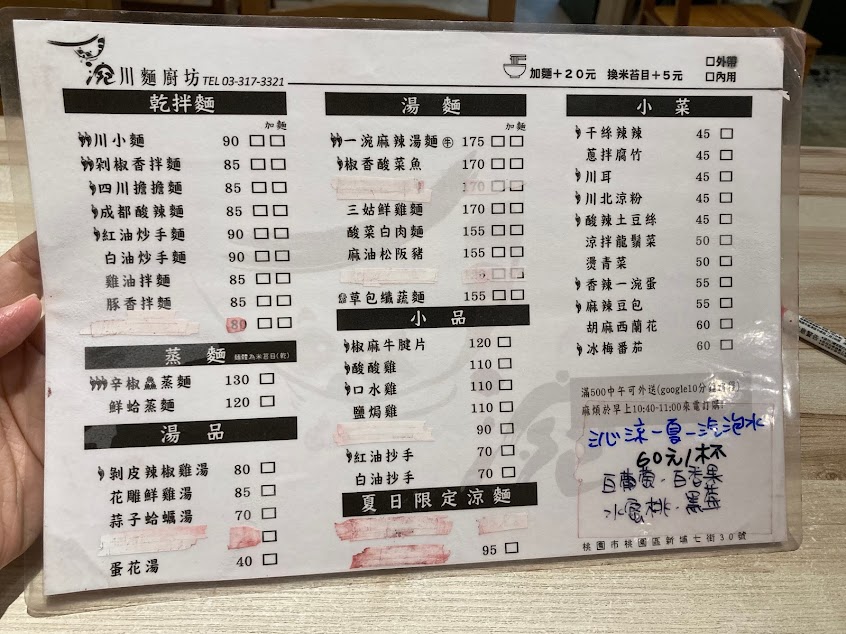 川麵廚坊 TEL 03-317-3321
加麵+20元 換米苔目+5元
□外帶
□內用
乾拌麵
加麵
川小麵 90 □□
剁椒香拌麵 85 □□
四川擔擔麵 85 □□
成都酸辣麵 85 □□
紅油炒手麵 90 □□
白油炒手麵 90 □□
雞油拌麵 85 □□
豚香拌麵 85 □□
80 □□
蒸麵 麵體為米苔目(乾)
辛椒蒸麵 130 □
鮮蛤蒸麵 120 □
湯品
剝皮辣椒雞湯 80 □
花雕鮮雞湯 85 □
蒜子蛤蠣湯 70 □
□
蛋花湯 40 □
湯麵
加麵
一浣麻辣湯麵 牛 175 □□
椒香酸菜魚 170 □□
170 □□
三姑鮮雞麵 170 □□
酸菜白肉麵 155 □□
麻油松阪豬 155 □□
□□
草包纖蔬麵 155 □□
小品
椒麻牛腱片 120 □
酸酸雞 110 □
口水雞 110 □
鹽焗雞 110 □
90 □
紅油抄手 70 □
白油沙手 70 □
夏日限定涼麵
□
95 □
小菜
干絲辣辣 45 □
蔥拌腐竹 45 □
川耳 45 □
川北涼粉 45 □
酸辣土豆絲 45 □
涼拌龍鬚菜 50 □
燙青菜 50 □
香辣一浣蛋 55 □
麻辣豆包 55 □
胡麻西蘭花 60 □
冰梅番茄 60 □
滿500中午可外送(google10分
麻煩於早上10:40-11:00來電訂購!
沁涼一夏-汽泡水
60元/杯
百香果
水蜜桃.
桃園市桃園區新埔七街30號